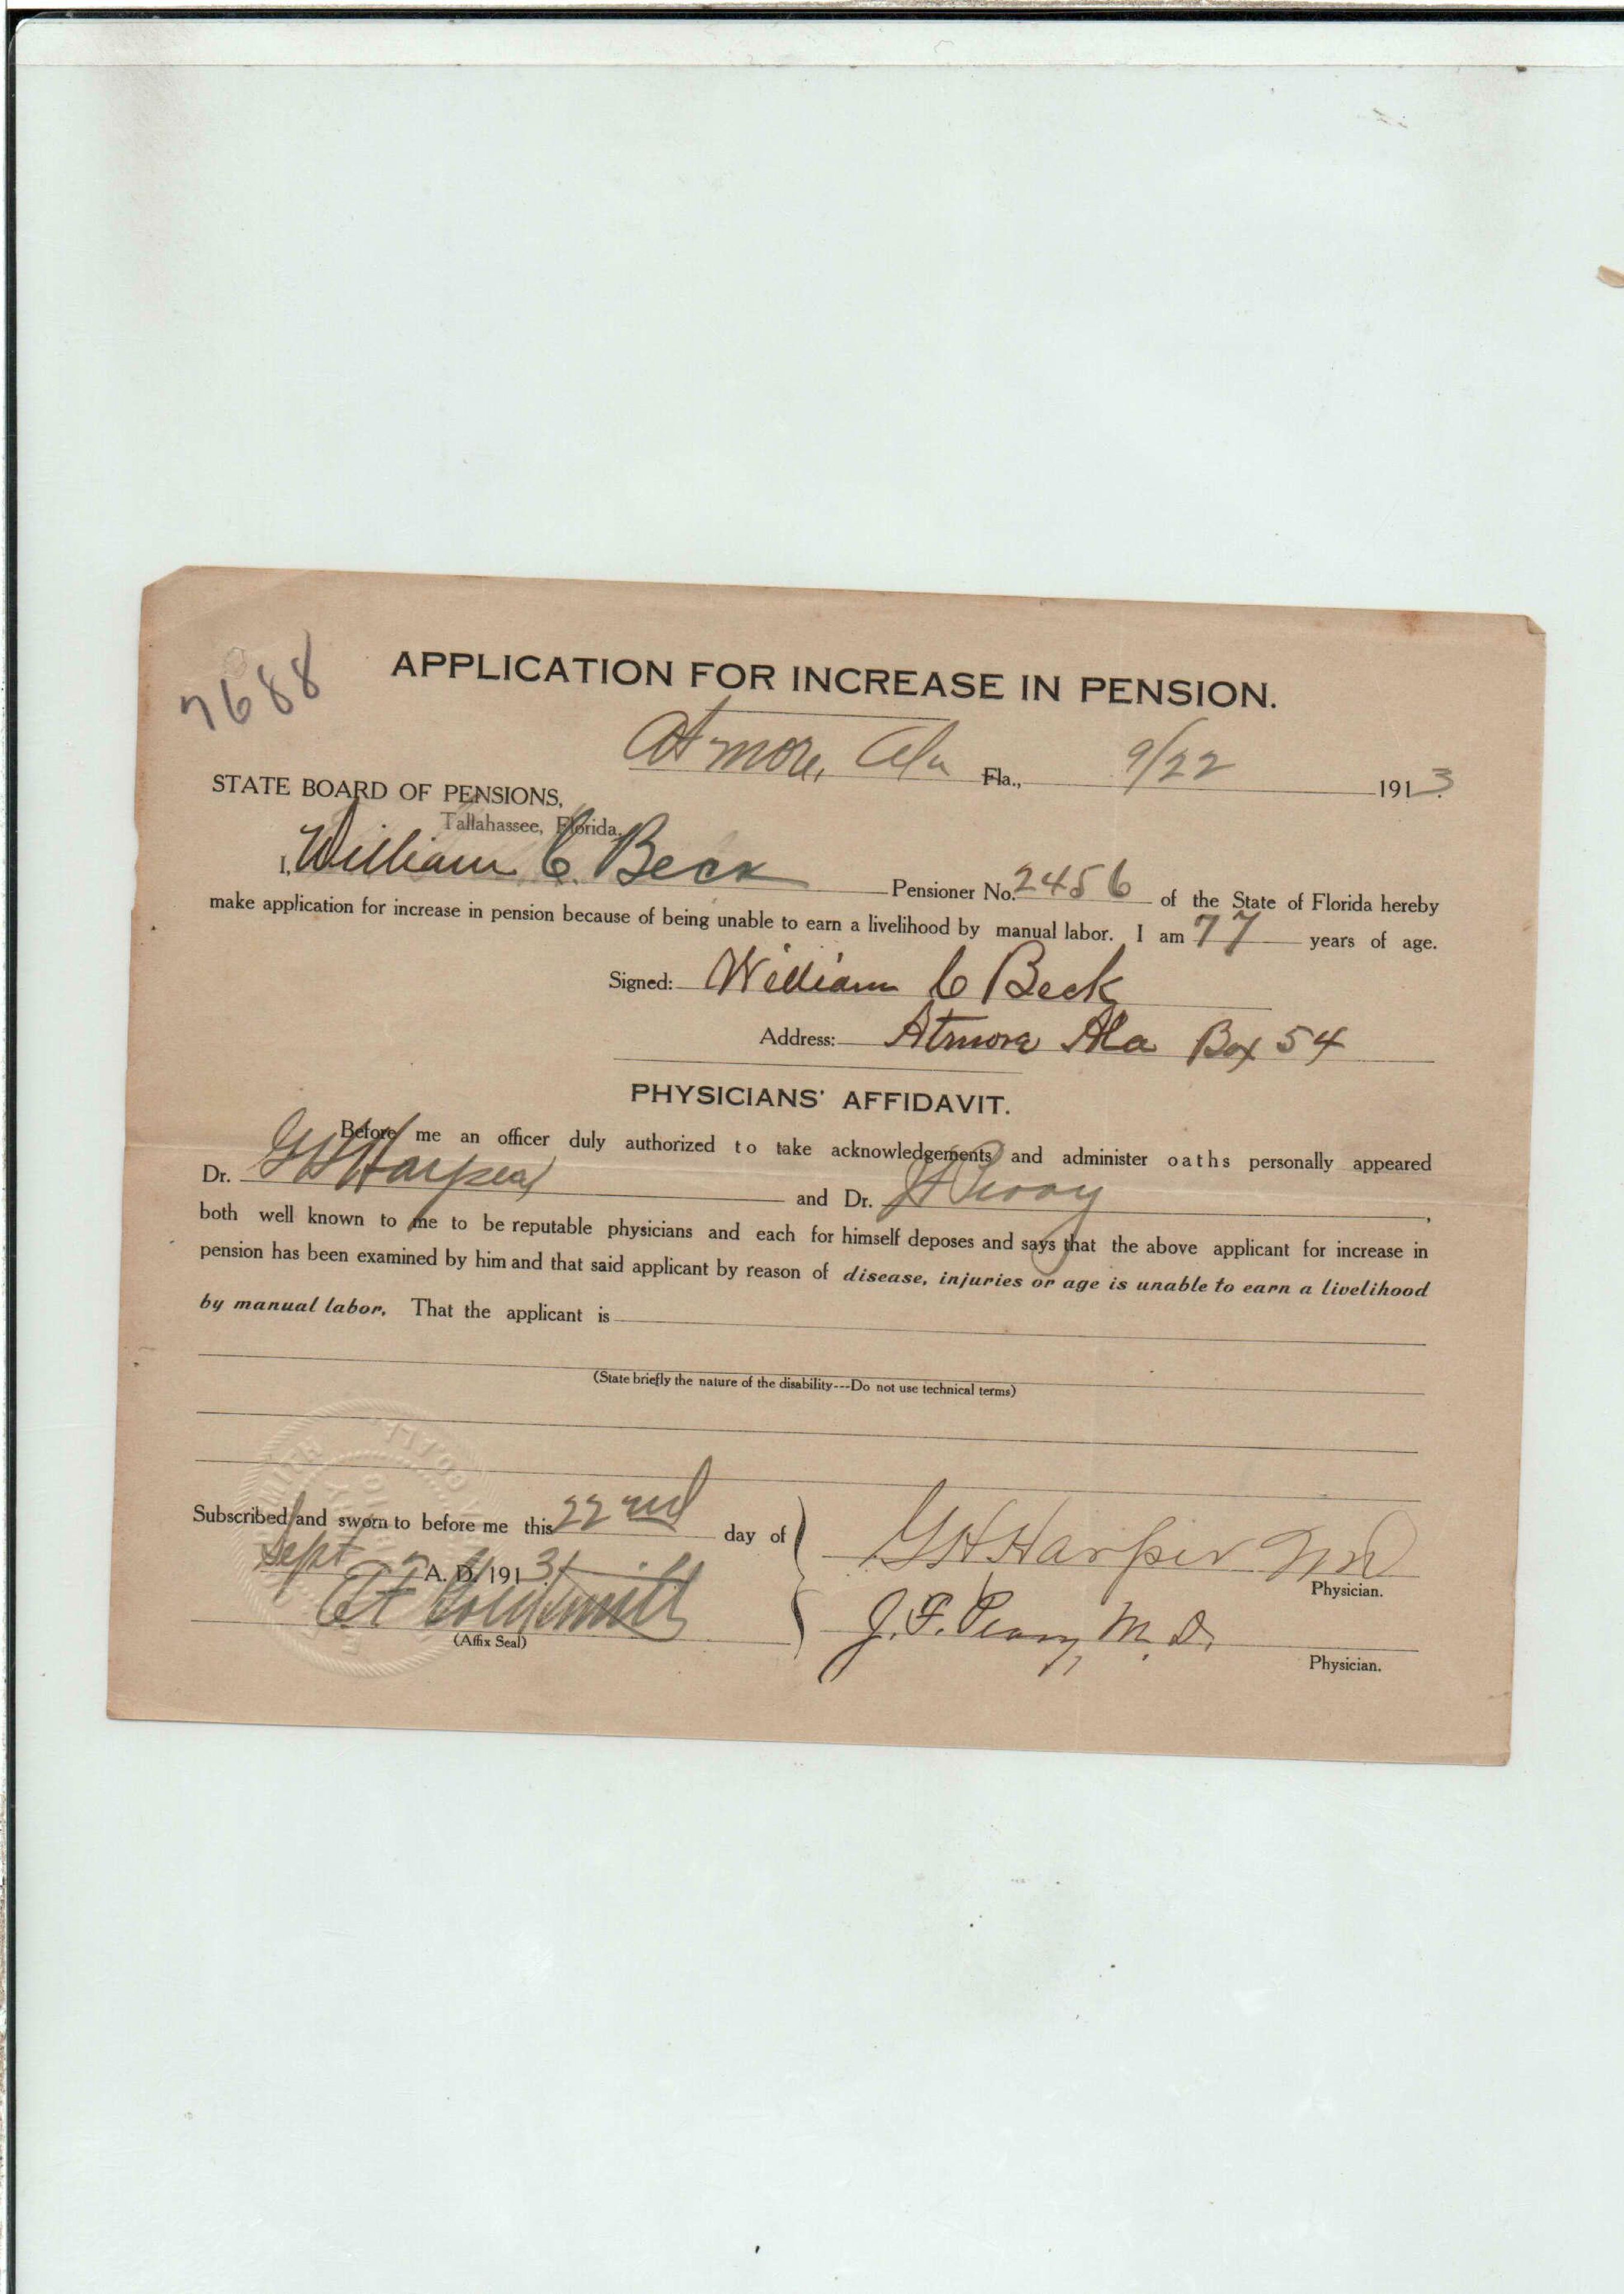 7688
APPLICATION FOR INCREASE IN PENSION.
Atmore, Ala Fla., 9/22 1913.
STATE BOARD OF PENSIONS,
Tallahassee, Florida.
I, William C. Beck Pensioner No. 2456 of the State of Florida hereby
make application for increase in pension because of being unable to earn a livelihood by manual labor. I am 77 years of age.
Signed: William C Beck
Address: Atmore Ala Box 54
PHYSICIANS' AFFIDAVIT.
Before me an officer duly authorized to take acknowledgements and administer oaths personally appeared
Dr. G H Harper and Dr. Perry,
both well known to me to be reputable physicians and each for himself deposes and says that the above applicant for increase in
pension has been examined by him and that said applicant by reason of disease, injuries or age is unable to earn a livelihood
by manual labor. That the applicant is
(State briefly the nature of the disability---Do not use technical terms)
Subscribed and sworn to before me this 22nd day of
Sept A. D. 1913
G H Harper MD
Physician.
(Affix Seal)
J. F. Perry, M. D.
Physician.